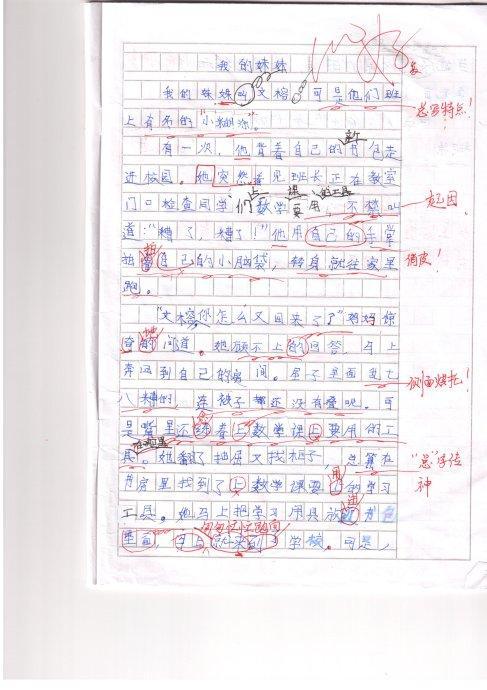 我的妹妹
我的妹妹叫文榕，可是他们班
总写特点！
上有名的“小糊涂”。
新
有一次，他背着自己的书包走
进校园。她突然看见班长正在教室
上 课 的工具
门口检查同学们数学要用，不禁叫
起因
道：“糟了，糟了！”他用自己的手掌
拍
拍自己的小脑袋，转身就往家里
俏皮！
跑。
“文榕你怎么又回来了？”妈妈惊
地
奇的问道。她顾不上的回答，马上
奔回到自己的房间。屋子里面乱七
侧面烘托！
八糟的，连被子都还没有叠呢。可
念
是嘴里还练着上数学课上要用的工
具。她翻了抽屉又找柜子，总算在
“总”字传神
用
书房里找到了上数学课要上的学习
进
工具。她马上把学习用具放到书包
匆匆忙忙跑回
里面，马上就来到了学校。可是，